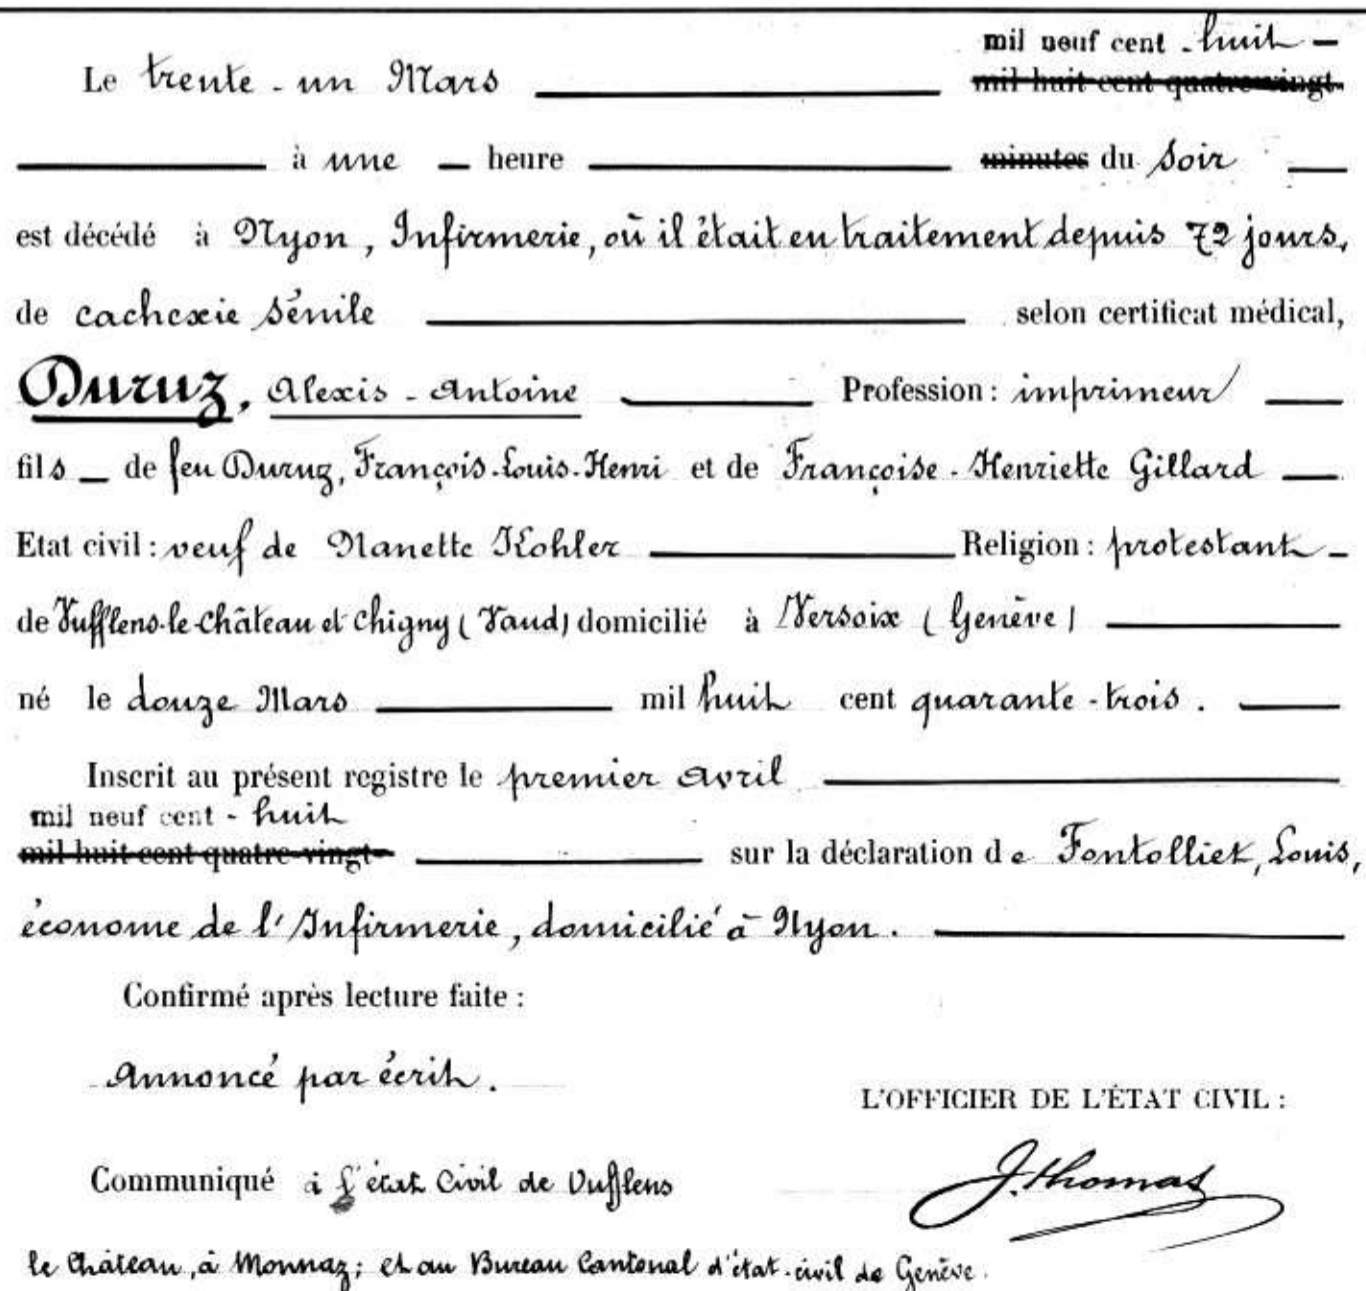 mil neuf cent - huit -
Le trente - un Mars mil huit cent quatre-vingt-
à une heure minutes du soir
est décédé à Nyon, Infirmerie, où il était en traitement depuis 72 jours,
de cachexie sénile selon certificat médical,
Duruz, Alexis - Antoine Profession : imprimeur
fils de feu Duruz, François-Louis-Henri et de Françoise - Henriette Gillard
Etat civil : veuf de Nanette Kohler Religion : protestant
de Vufflens-le-Château et Chigny (Vaud) domicilié à Versoix (Genève)
né le douze Mars mil huit cent quarante-trois.
Inscrit au présent registre le premier avril
mil neuf cent - huit
mil huit cent quatre-vingt- sur la déclaration de Fontolliet, Louis,
économe de l'Infirmerie, domicilié à Nyon.
Confirmé après lecture faite :
Annoncé par écrit.
L'OFFICIER DE L'ÉTAT CIVIL :
Communiqué à l'état Civil de Vufflens
J. Thomas
le Château, à Monnaz; et au Bureau Cantonal d'état-civil de Genève.